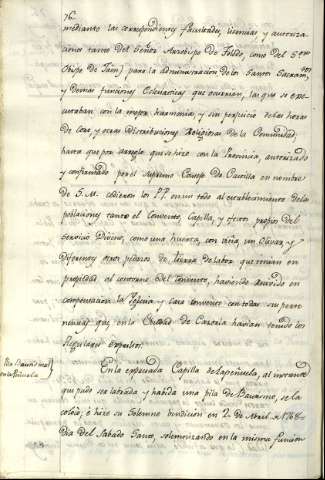 76.
mediante las correspondientes facultades, licencias y autoriza-
ciones tanto del Señor Arzobispo de Toledo, como del S.or
Obispo de Jaen) para la administracion de los Santos Sacram.tos
y demas funciones Eclesiasticas que ocurrian, las que se exe-
cutaban con la mejor harmonia, y sin perjuicio de las horas
de Coro y otras distribuciones Religiosas de la Comunidad;
hasta que por arreglo que se hizo con la Provincia, autorizado
y confirmado por el Supremo Consejo de Castilla en nombre
de S.M. cedieron los P.P. en un todo al establecimiento de la
poblacion, tanto el Convento, Capilla, y efectos propios del
Servicio Divino, como una huerta, con viña, un Olivar, y
diferentes otros pedazos de tierra de labor que tenian en
propiedad al contorno del Convento, haviendo recivido en
compensacion la Yglesia y Casa convento con todas sus perte-
nencias que en la Ciudad de Cazorla havian tenido los
Regulares expulsos.
Pila Bautismal
en la Peñuela
En la expresada Capilla de la peñuela, al instante
que pudo ser labrada y havida una pila de Bautismo, se la
colocó, é hize su Solemne bendicion en 2 de Abril de 1768
Dia del Sabado Santo, solemnizando en la misma funcion